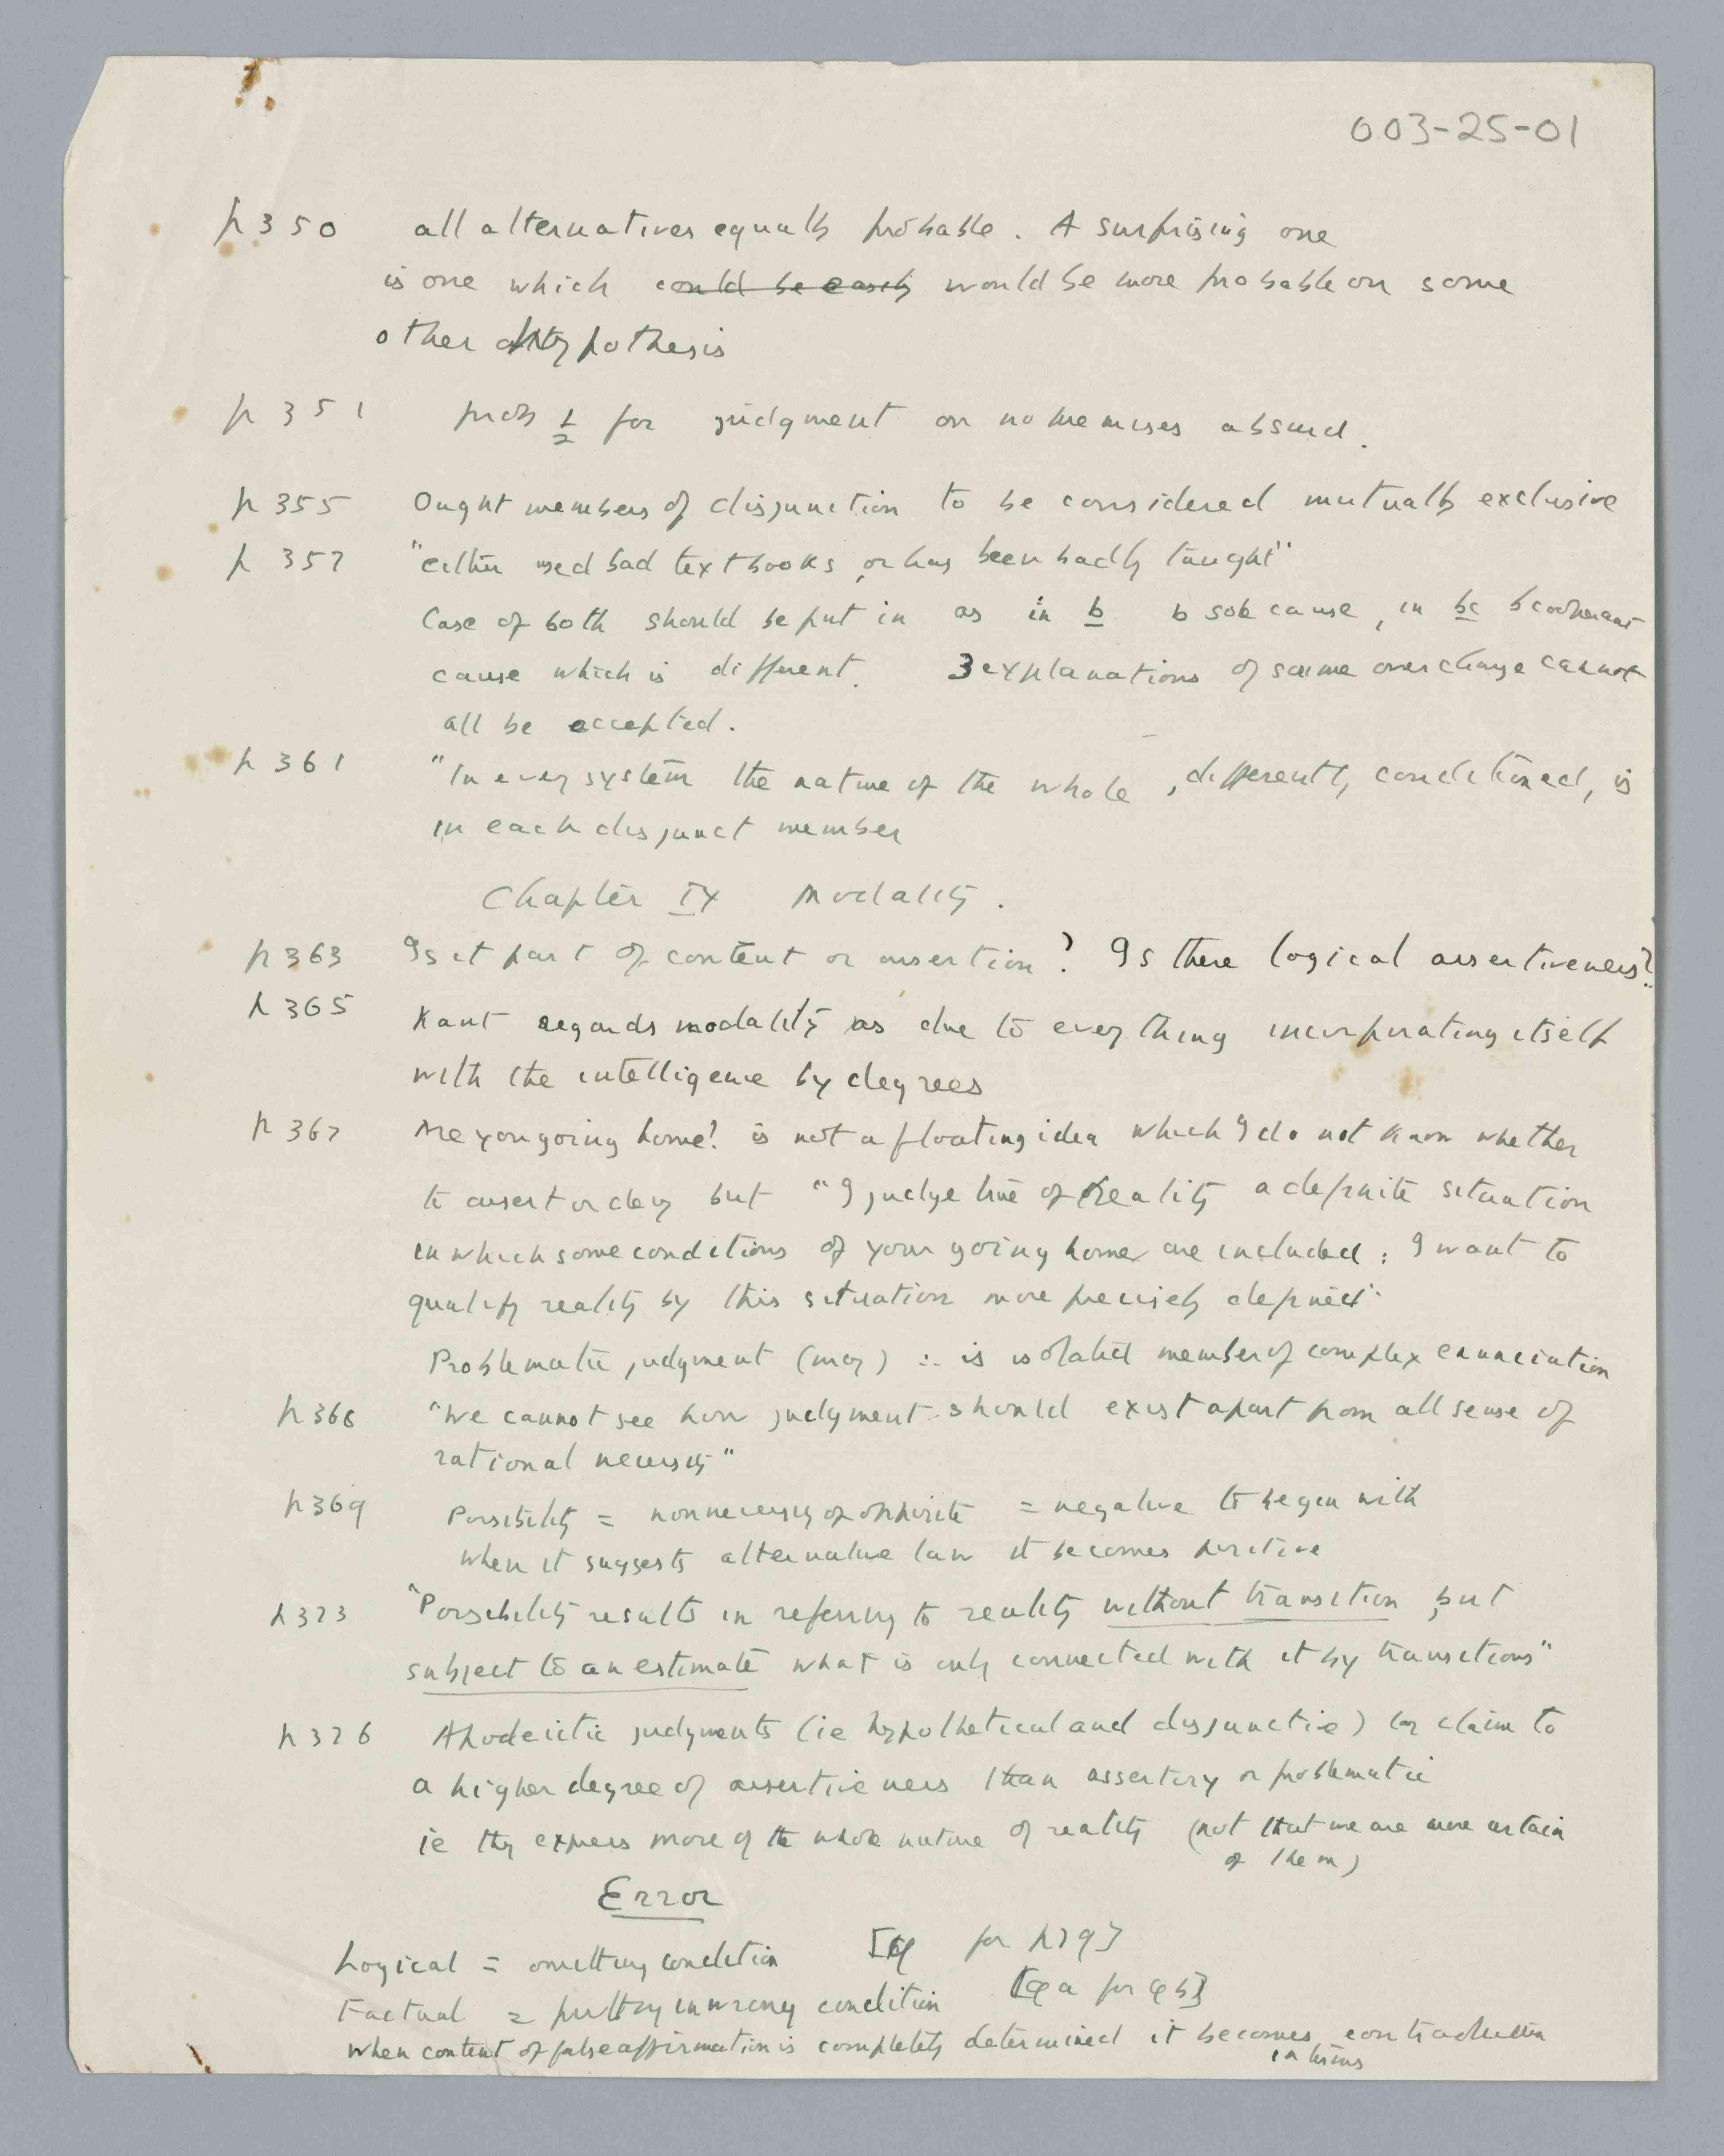 003-25-01
p 350 all alternatives equally probable. A surprising one
is one which could be easily would be more probable on some
other hypothesis
p 351 prob 1/2 for judgment on no premises absurd.
p 355 Ought members of disjunction to be considered mutually exclusive
p 357 "either used bad textbooks, or has been badly taught"
Case of both should be put in as in b b sole cause, in bc b
cause which is different. 3 explanations of same overcharge cannot
all be accepted.
p 361 "In every system the nature of the whole, differently conditioned, is
in each disjunct member
Chapter IX Modality.
p 363 Is it part of content or assertion? Is there logical assertiveness?
p 365 Kant regards modality as due to everything incorporating itself
with the intelligence by degrees
p 367 Are you going home? is not a floating idea which I do not know whether
to assert or deny but "I judge true of reality a definite situation
in which some conditions of your going home are included; I want to
qualify reality by this situation more precisely defined"
Problematic judgment (may) ∴ is isolated member of complex enunciation
p 368 "We cannot see how judgment should exist apart from all sense of
rational necessity"
p 369 Possibility = nonnecessity of opposite = negative to begin with
when it suggests alternative law it becomes positive
p 373 "Possibility results in referring to reality without transition, but
subject to an estimate what is only connected with it by transitions"
p 376 Apodeictic judgments (ie hypothetical and disjunctive) lay claim to
a higher degree of assertiveness than assertory or problematic
ie they express more of the whole nature of reality (not that we are more certain
of them)
Error
Logical = omitting condition [q for p⊃q]
Factual = putting in wrong condition [φa for φb]
When content of false affirmation is completely determined it becomes contradiction
in terms